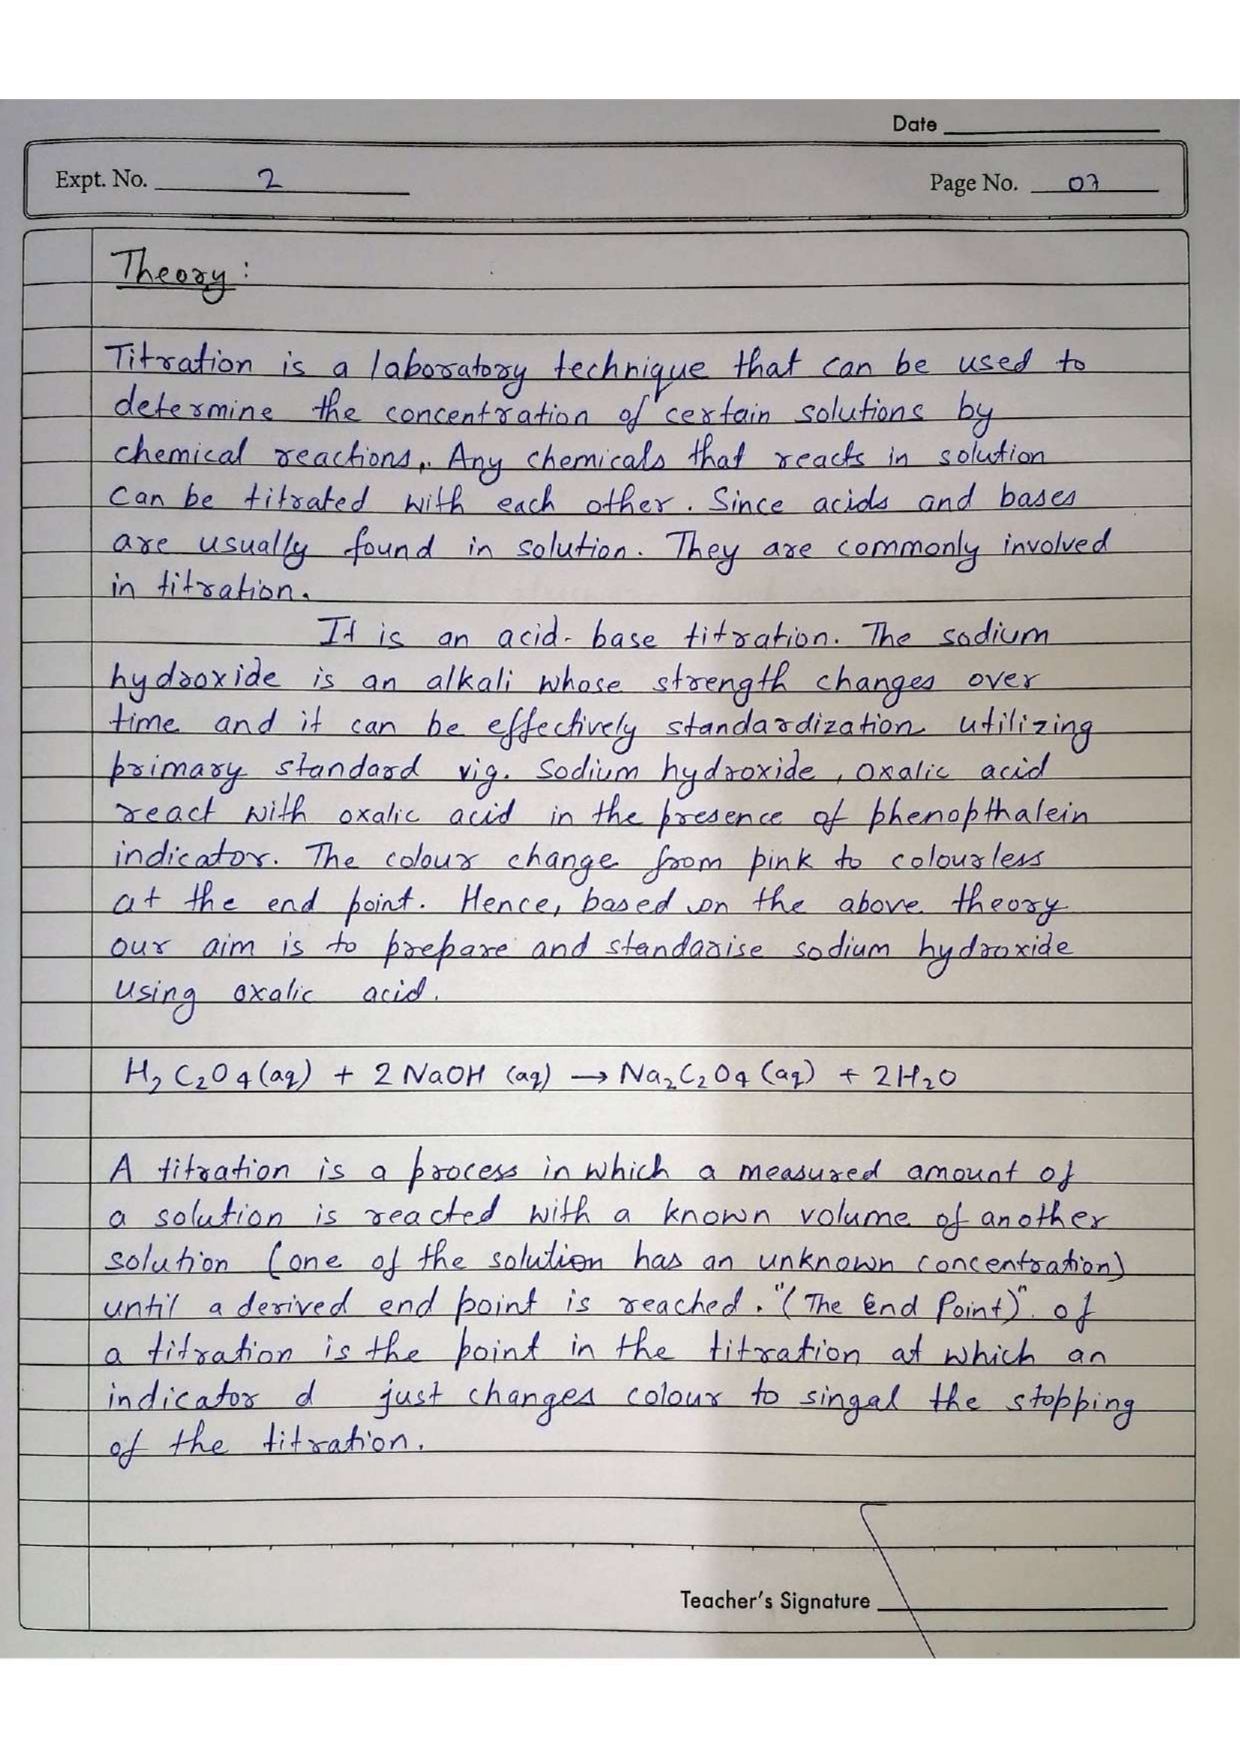 Date
Expt. No. 2
Page No. 07
Theory:
Titration is a laboratory technique that can be used to
determine the concentration of certain solutions by
chemical reactions,. Any chemicals that reacts in solution
can be titrated with each other. Since acids and bases
are usually found in solution. They are commonly involved
in titration.
It is an acid-base titration. The sodium
hydroxide is an alkali whose strength changes over
time and it can be effectively standardization utilizing
primary standard vig. Sodium hydroxide, oxalic acid
react with oxalic acid in the presence of phenopthalein
indicator. The colour change from pink to colourless
at the end point. Hence, based on the above theory
our aim is to prepare and standarise sodium hydroxide
using oxalic acid.
H2C2O4(aq) + 2NaOH (aq) → Na2C2O4(aq) + 2H2O
A titration is a process in which a measured amount of
a solution is reacted with a known volume of another
solution (one of the solution has an unknown concentration)
until a derived end point is reached. "(The End Point)" of
a titration is the point in the titration at which an
indicator d just changes colour to singal the stopping
of the titration.
Teacher's Signature